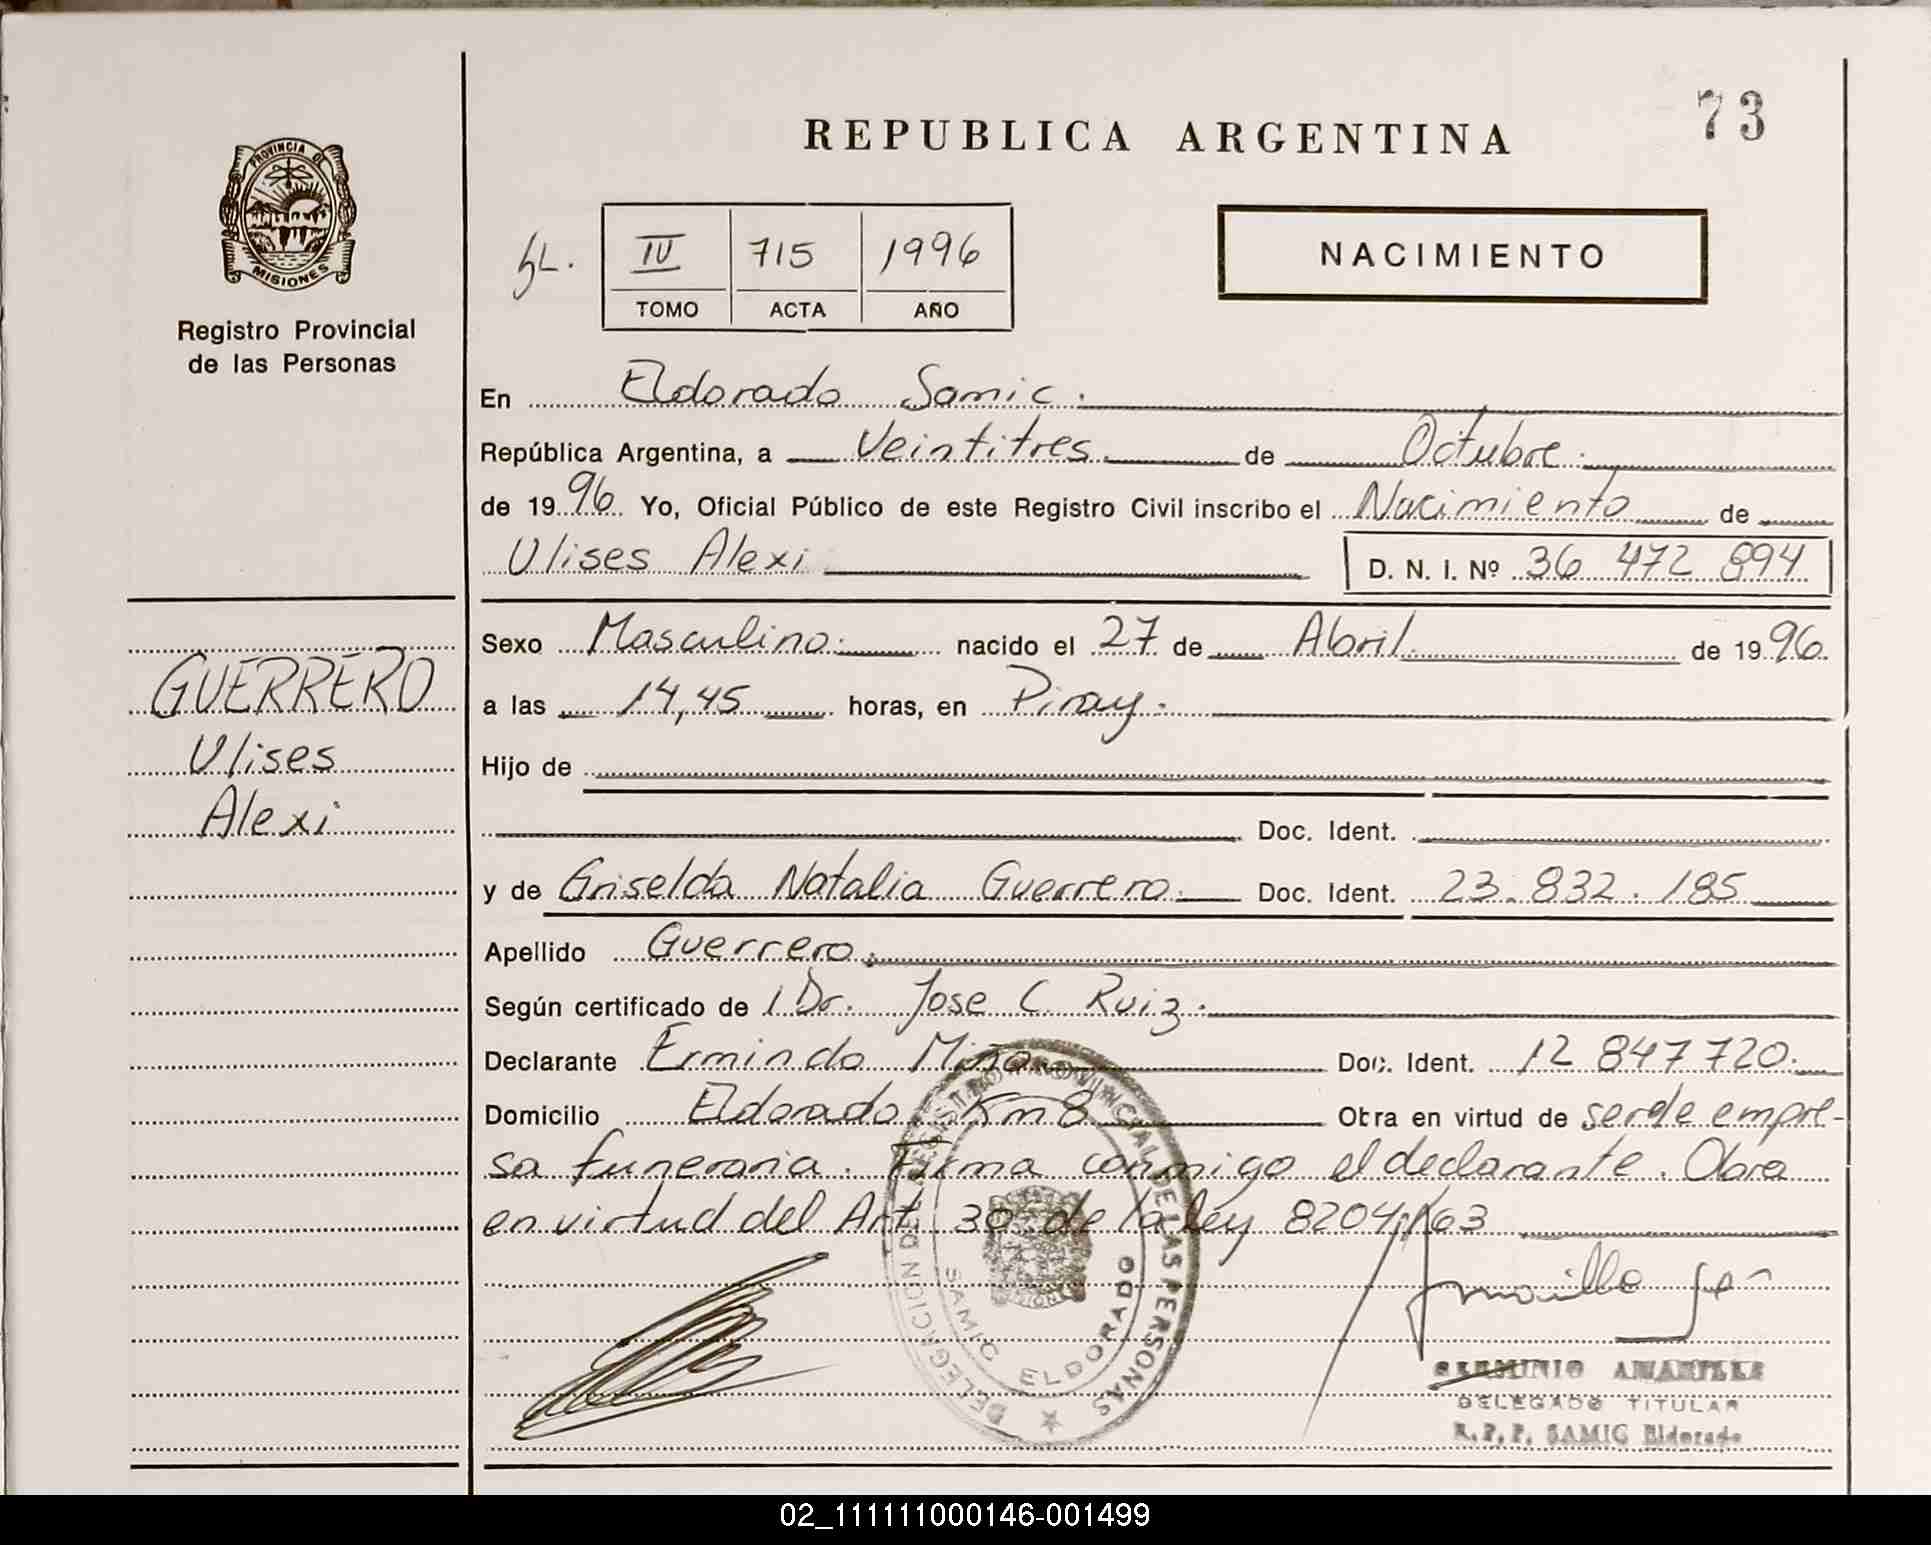 REPUBLICA ARGENTINA
73
PROVINCIA DE
MISIONES
Registro Provincial
de las Personas
IV 715 1996
TOMO ACTA AÑO
NACIMIENTO
En Eldorado Samic.
República Argentina, a Veintitres de Octubre.
de 1996 Yo, Oficial Público de este Registro Civil inscribo el Nacimiento de
Ulises Alexi D. N. I. Nº 36 472 894
GUERRERO
Ulises
Alexi
Sexo Masculino. nacido el 27 de Abril. de 1996.
a las 14,45 horas, en Piray.
Hijo de
Doc. Ident.
y de Griselda Natalia Guerrero. Doc. Ident. 23.832.185
Apellido Guerrero.
Según certificado de Dr. Jose C Ruiz.
Declarante Ermindo Doc. Ident. 12 847 720.
Domicilio Eldorado Km 8 Obra en virtud de ser de empre-
sa funeraria. Firma conmigo el declarante. Obra
en virtud del Art. 30 de la ley 8204/63
DELEGACION DEL REGISTRO PROVINCIAL DE LAS PERSONAS
SAMIC ELDORADO
DELEGADO TITULAR
R.P.P. SAMIC Eldorado
02_111111000146-001499